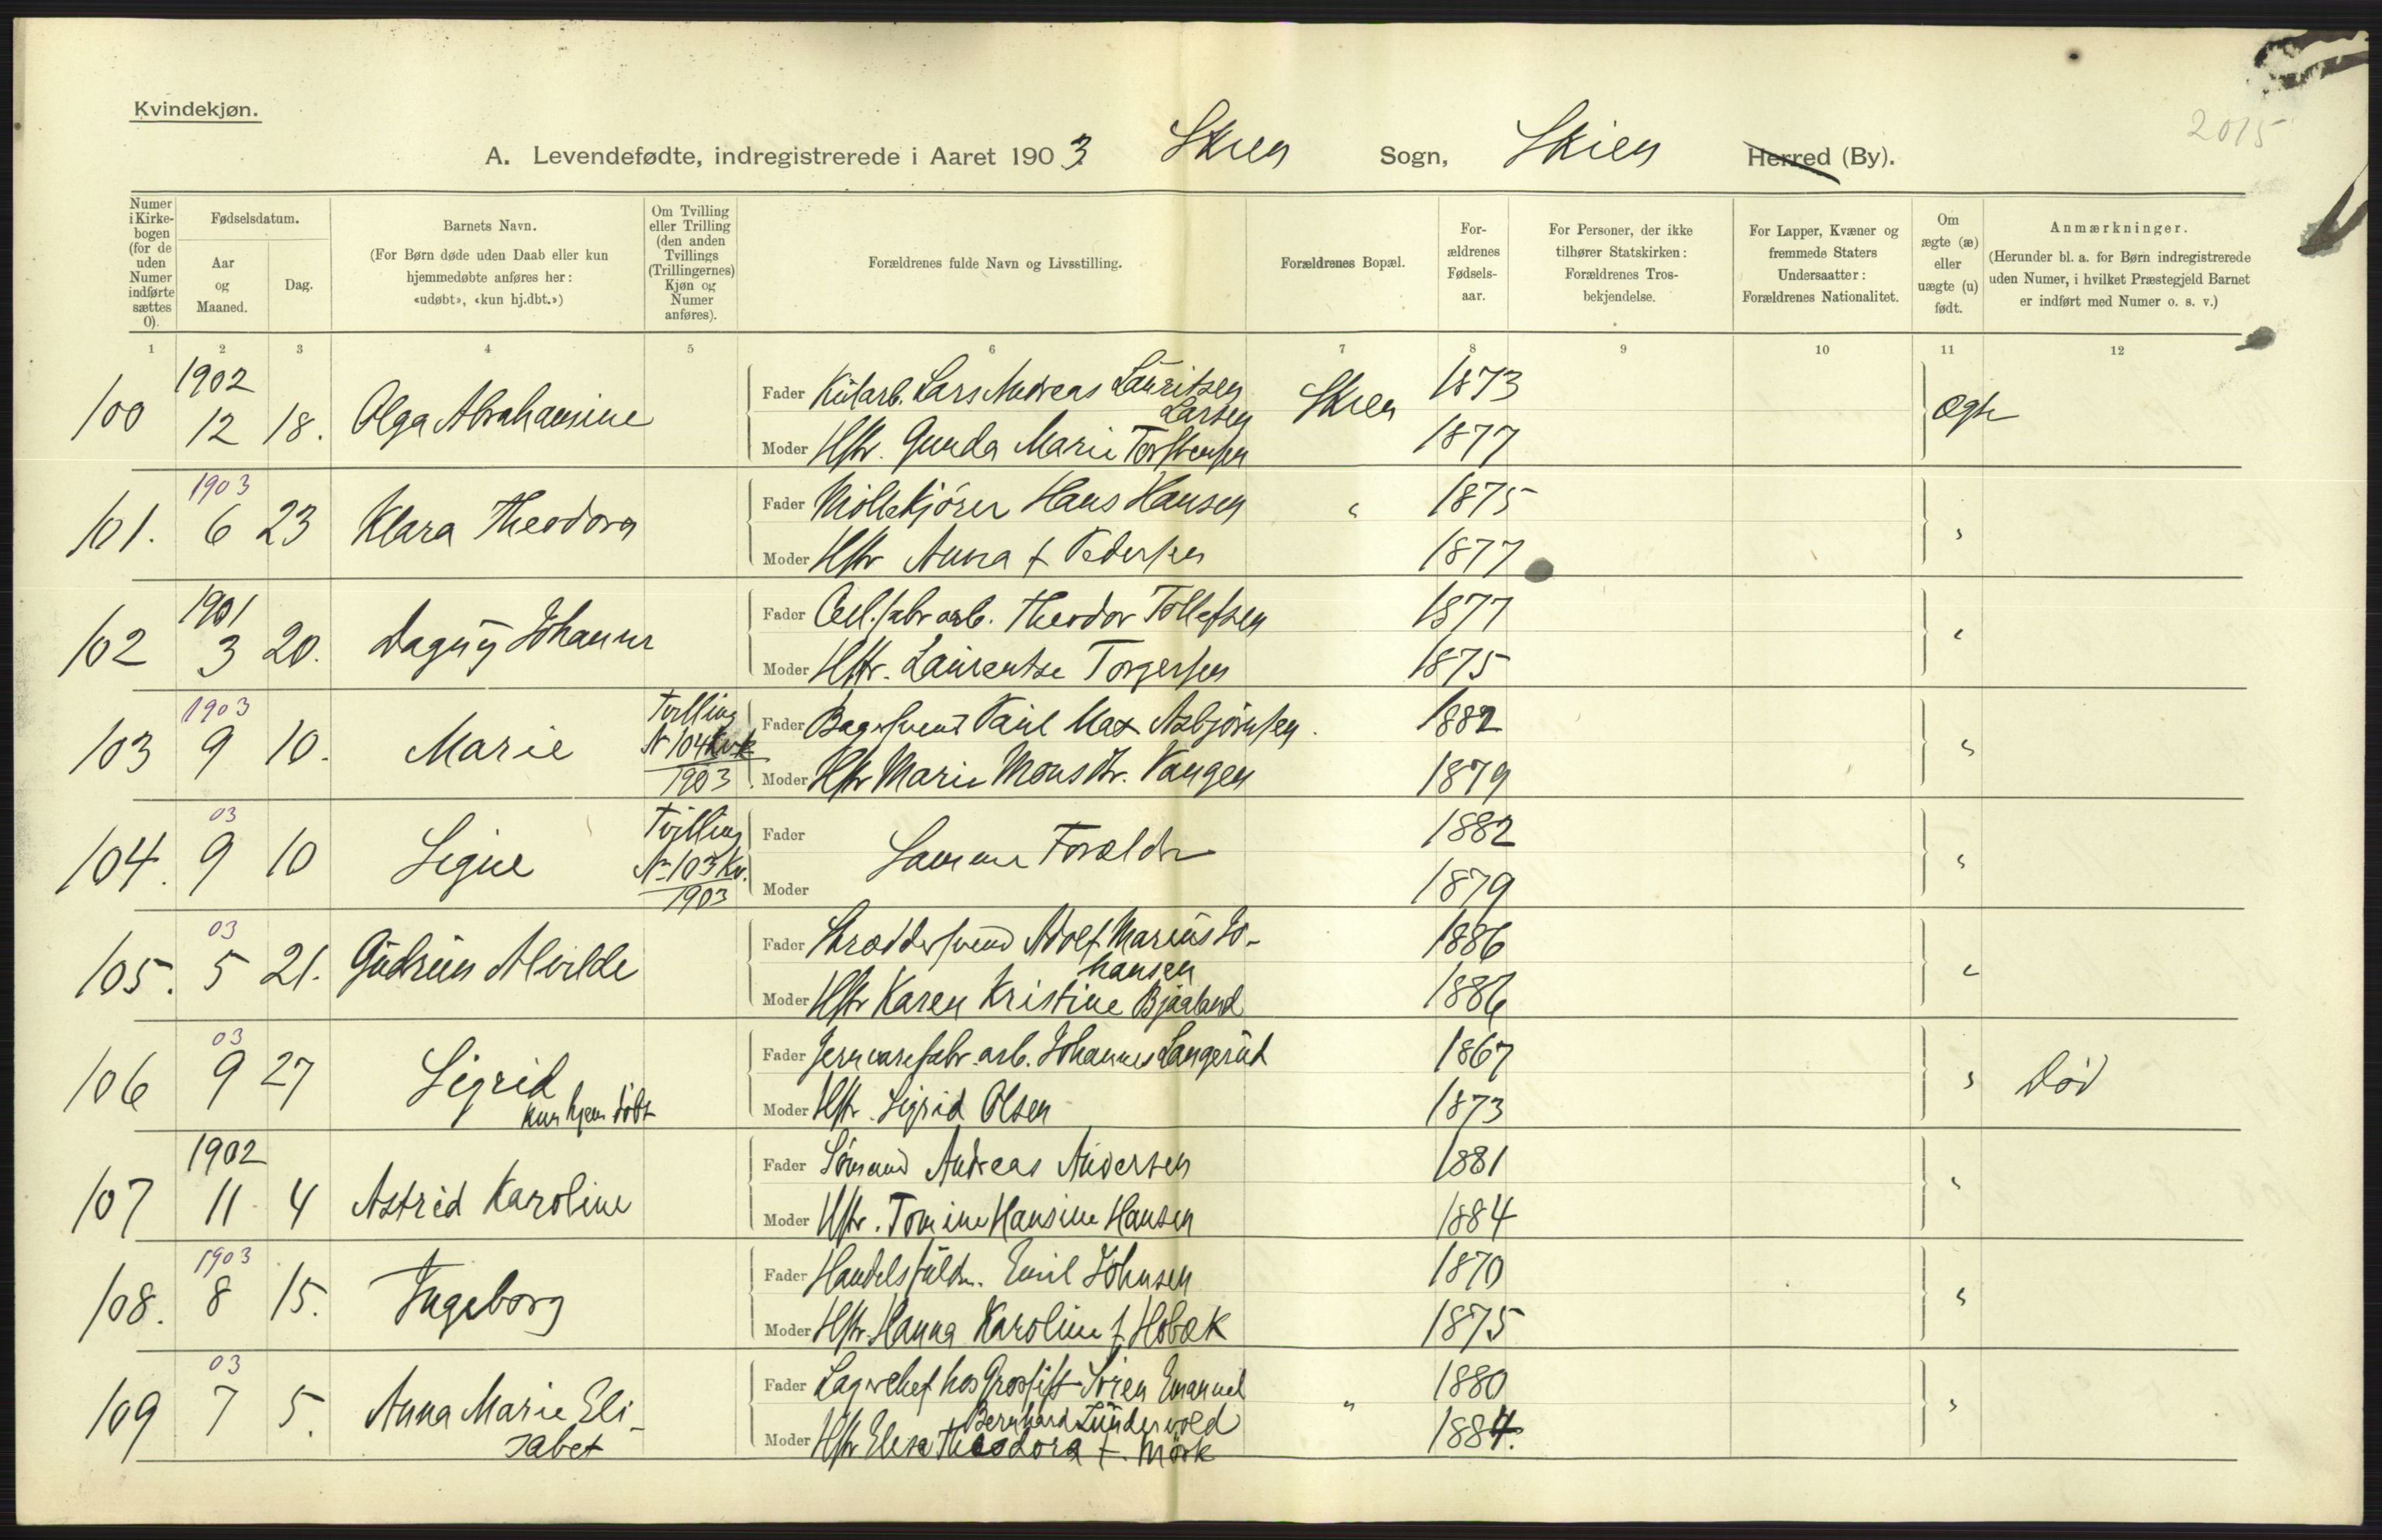 2015
Kvindekjøn.
A. Levendefødte, indregistrerede i Aaret 1903 Skien Sogn, Skien Herred (By).
Numer i Kirke-bogen (for de uden Numer indførte sættes 0).
Fødselsdatum.
Aar og Maaned.
Dag.
Barnets Navn.
(For Børn døde uden Daab eller kun hjemmedøbte anføres her: «udøbt», «kun hj.dbt.»)
Om Tvilling eller Trilling (den anden Tvillings (Trillingernes) Kjøn og Numer anføres).
Forældrenes fulde Navn og Livsstilling.
Forældrenes Bopæl.
For-ældrenes Fødsels-aar.
For Personer, der ikke tilhører Statskirken: Forældrenes Tros-bekjendelse.
For Lapper, Kvæner og fremmede Staters Undersaatter: Forældrenes Nationalitet.
Om ægte (æ) eller uægte (u) født.
Anmærkninger.
(Herunder bl. a. for Børn indregistrerede uden Numer, i hvilket Præstegjeld Barnet er indført med Numer o. s. v.)
1 2 3 4 5 6 7 8 9 10 11 12
1902
100 12 18. Olga Abrahamine
Fader Kularb. Lars Andreas Lauritsen Larsen Skien 1873 ægte
Moder Hstr. Gunda Marie Torstensen 1877
1903
101. 6 23 Klara Theodora
Fader Møllekjører Hans Hansen " 1875 "
Moder Hstr Anna f Pedersen 1877
1901
102 3 20. Dagny Johanne
Fader Cell.fabr arb. Theodor Tollefsen 1877 "
Moder Hstr. Laurentse Torgersen 1875
1903
103 9 10. Marie Tvilling N 104 Kvk 1903
Fader Bagersvend Paul Max Asbjørnsen. 1882 "
Moder Hstr Marie Monsdtr. Vangen 1879
03
104. 9 10 Signe Tvilling No 103 Kv. 1903
Fader Samme Forældre 1882 "
Moder 1879
03
105. 5 21. Gudrun Alvilde
Fader Skræddersvend Adolf Marius Jo-
hansen 1886 "
Moder Hstr Karen Kristine Bjaaland 1886
03
106 9 27 Sigrid
kun hjem døbt
Fader Jernvarefabr. arb. Johannes Langerud 1867 " Død
Moder Hstr. Sigrid Olsen 1873
1902
107 11 4 Astrid Karoline
Fader Sømand Andreas Andersen 1881 "
Moder Hstr. Tomine Hansine Hansen 1884
1903
108. 8 15. Ingeborg
Fader Handelsfuldm. Emil Johnsen 1870 "
Moder Hstr. Hanna Karoline f Hobæk 1875
03
109 7 5. Anna Marie Eli-
sabet
Fader Lagerchef hos Grossist Sören Emanuel
Bernhard Lundervold " 1880 "
Moder Hstr Elise Theodora f. Mørk 1884.